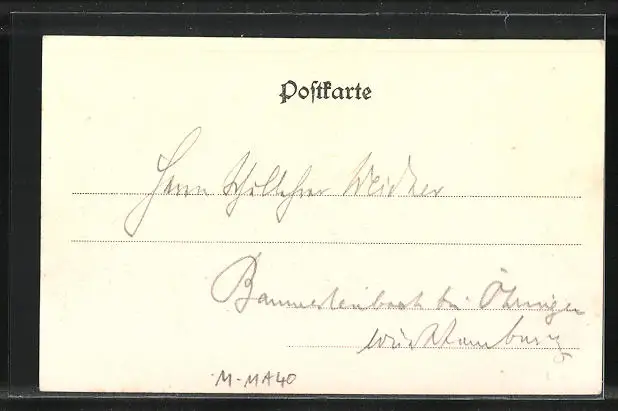 Postkarte
Herrn Schullehrer Weidner
Baumerlenbach bei Öhringen
Württemburg
M-MA40